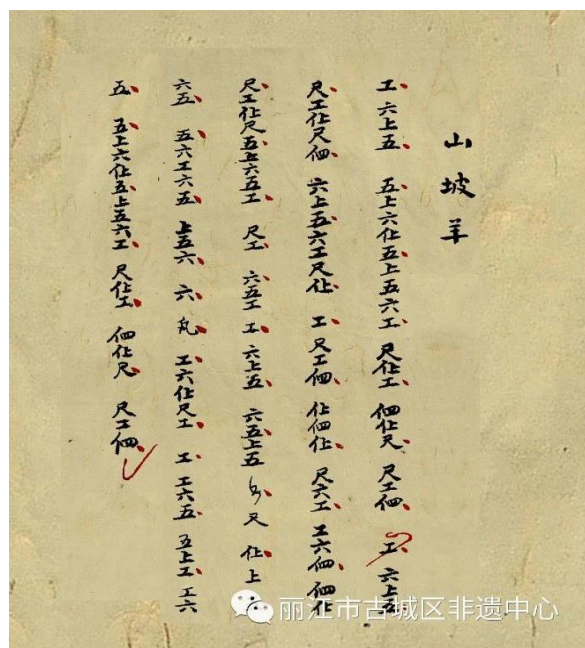 山坡羊
工 六上五 五上六仩五上五六工 尺仩工 伵仩尺 尺工伵 工 六上五
尺工仩尺伵 六上五六工尺仩 工 尺工伵 仩伵仩 尺六工 工六伵 伵仩
尺工仩尺五上六五工 尺工 六五工 工 六上五 六五上五 尺 仩上
六五 五六工六五 上五六 六 凡 工六仩尺工 工 工六五 五上工 工六
五 五上六仩五上五六工 尺仩工 伵仩尺 尺工伵
丽江市古城区非遗中心